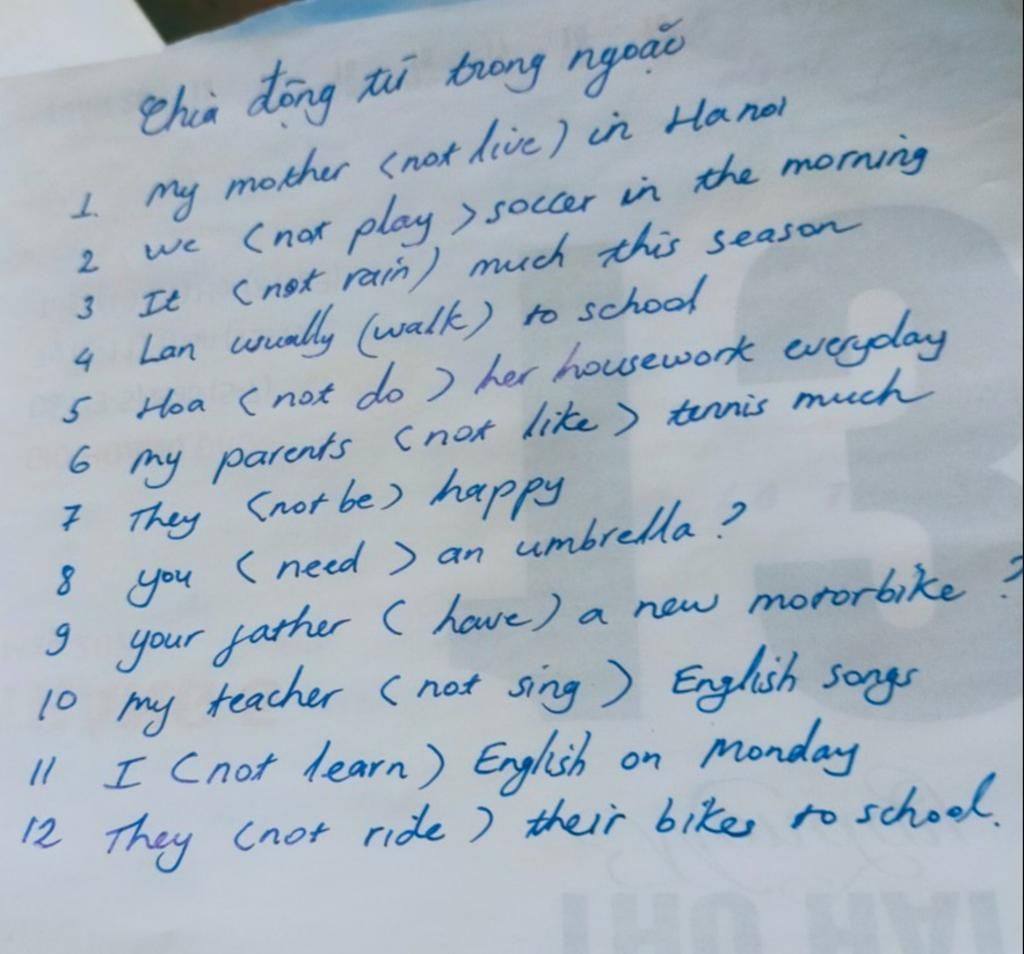 Chia động từ trong ngoặc
1 My mother (not live) in Hanoi
2 we (not play) soccer in the morning
3 It (not rain) much this season
4 Lan usually (walk) to school
5 Hoa (not do) her housework everyday
6 My parents (not like) tennis much
7 They (not be) happy
8 you (need) an umbrella?
9 your father (have) a new motorbike?
10 My teacher (not sing) English songs
11 I (not learn) English on Monday
12 They (not ride) their bikes to school.
13